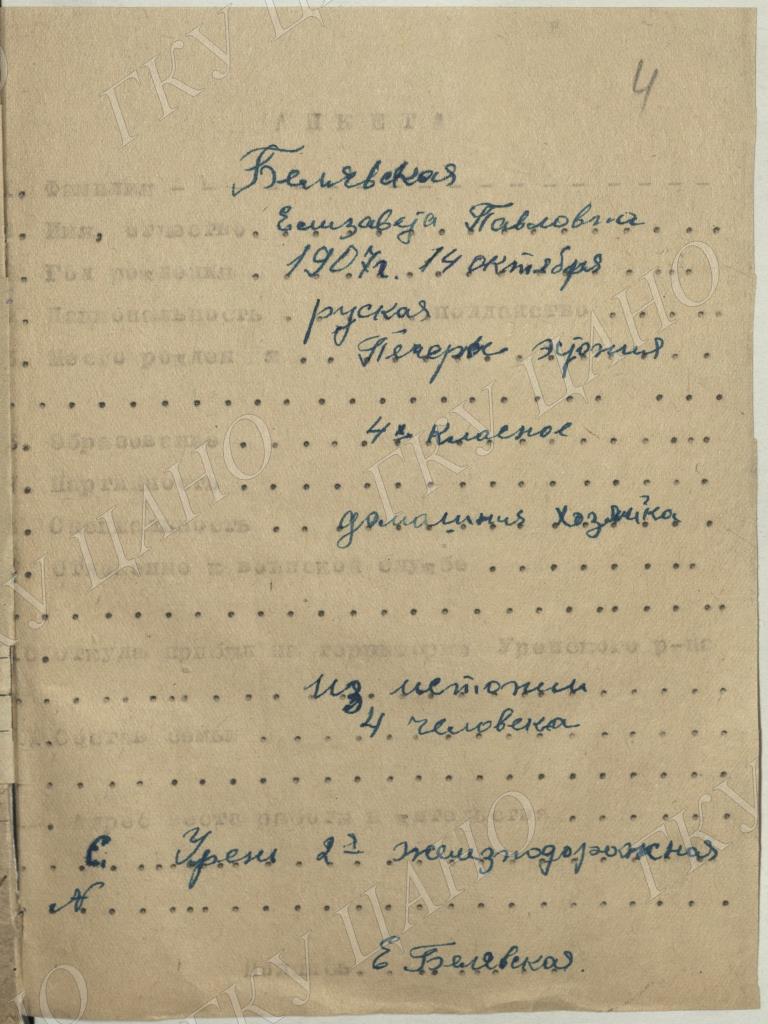 4
АНКЕТА
1. Фамилия - - - Белявская - - - - - - - - -
Имя, отчество. Елизавета Павловна . . .
Год рождения . 1907г. 14 октября . . . .
Национальность . руская подданство . . . . .
Место рожден я . . Печеры эстония . .
. . . . . . . . . . . . . . . . . . . . . .
6. Образование . . . . . 4х класное . . . . . .
Партийность . . . . . . . . . . . . . . . . .
Специальность . . домашния хозяйка .
Отношение к воинской службе . . . . . . . . .
. . . . . . . . . . . . . . . . . . . . . . . .
Откуда прибыл на территорию Уренского р-на
. . . . . . . . . . из эстонии . . . . .
Состав семьи . . . . 4 человека . . . . .
. . . . . . . . . . . . . . . . . . . . . .
Адрес места работы и жительства . . . . . .
с. Урень 2я железнодорожная
N . . . . . . . . . . . . . . . . . . . . . .
Подпись. Е Белявская.
ГКУ ЦАНО